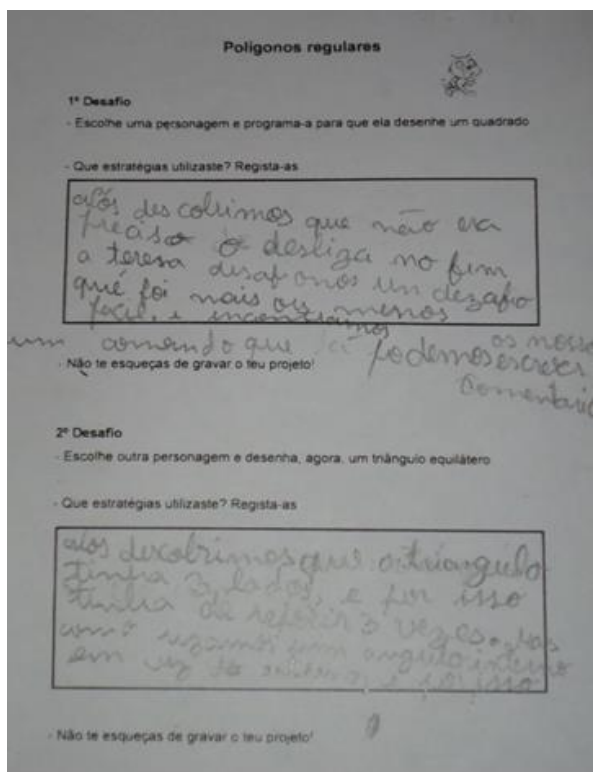 Polígonos regulares
1º Desafio
- Escolhe uma personagem e programa-a para que ela desenhe um quadrado
- Que estratégias utilizaste? Regista-as
nós descobrimos que não era
preciso o desliga no fim
a teresa desafionos un dezafio
que foi mais ou menos
fácil, e incontramos
um comando que já podemos escrever os nosso
comentario
- Não te esqueças de gravar o teu projeto!
2º Desafio
- Escolhe outra personagem e desenha, agora, um triângulo equilátero
- Que estratégias utilizaste? Regista-as
nós descobrimos que o triangulo
tinha 3 lados, e por isso
tinha de repetir 3 vezes.
como uzamos um angulo interno
em vez do e por isso
- Não te esqueças de gravar o teu projeto!